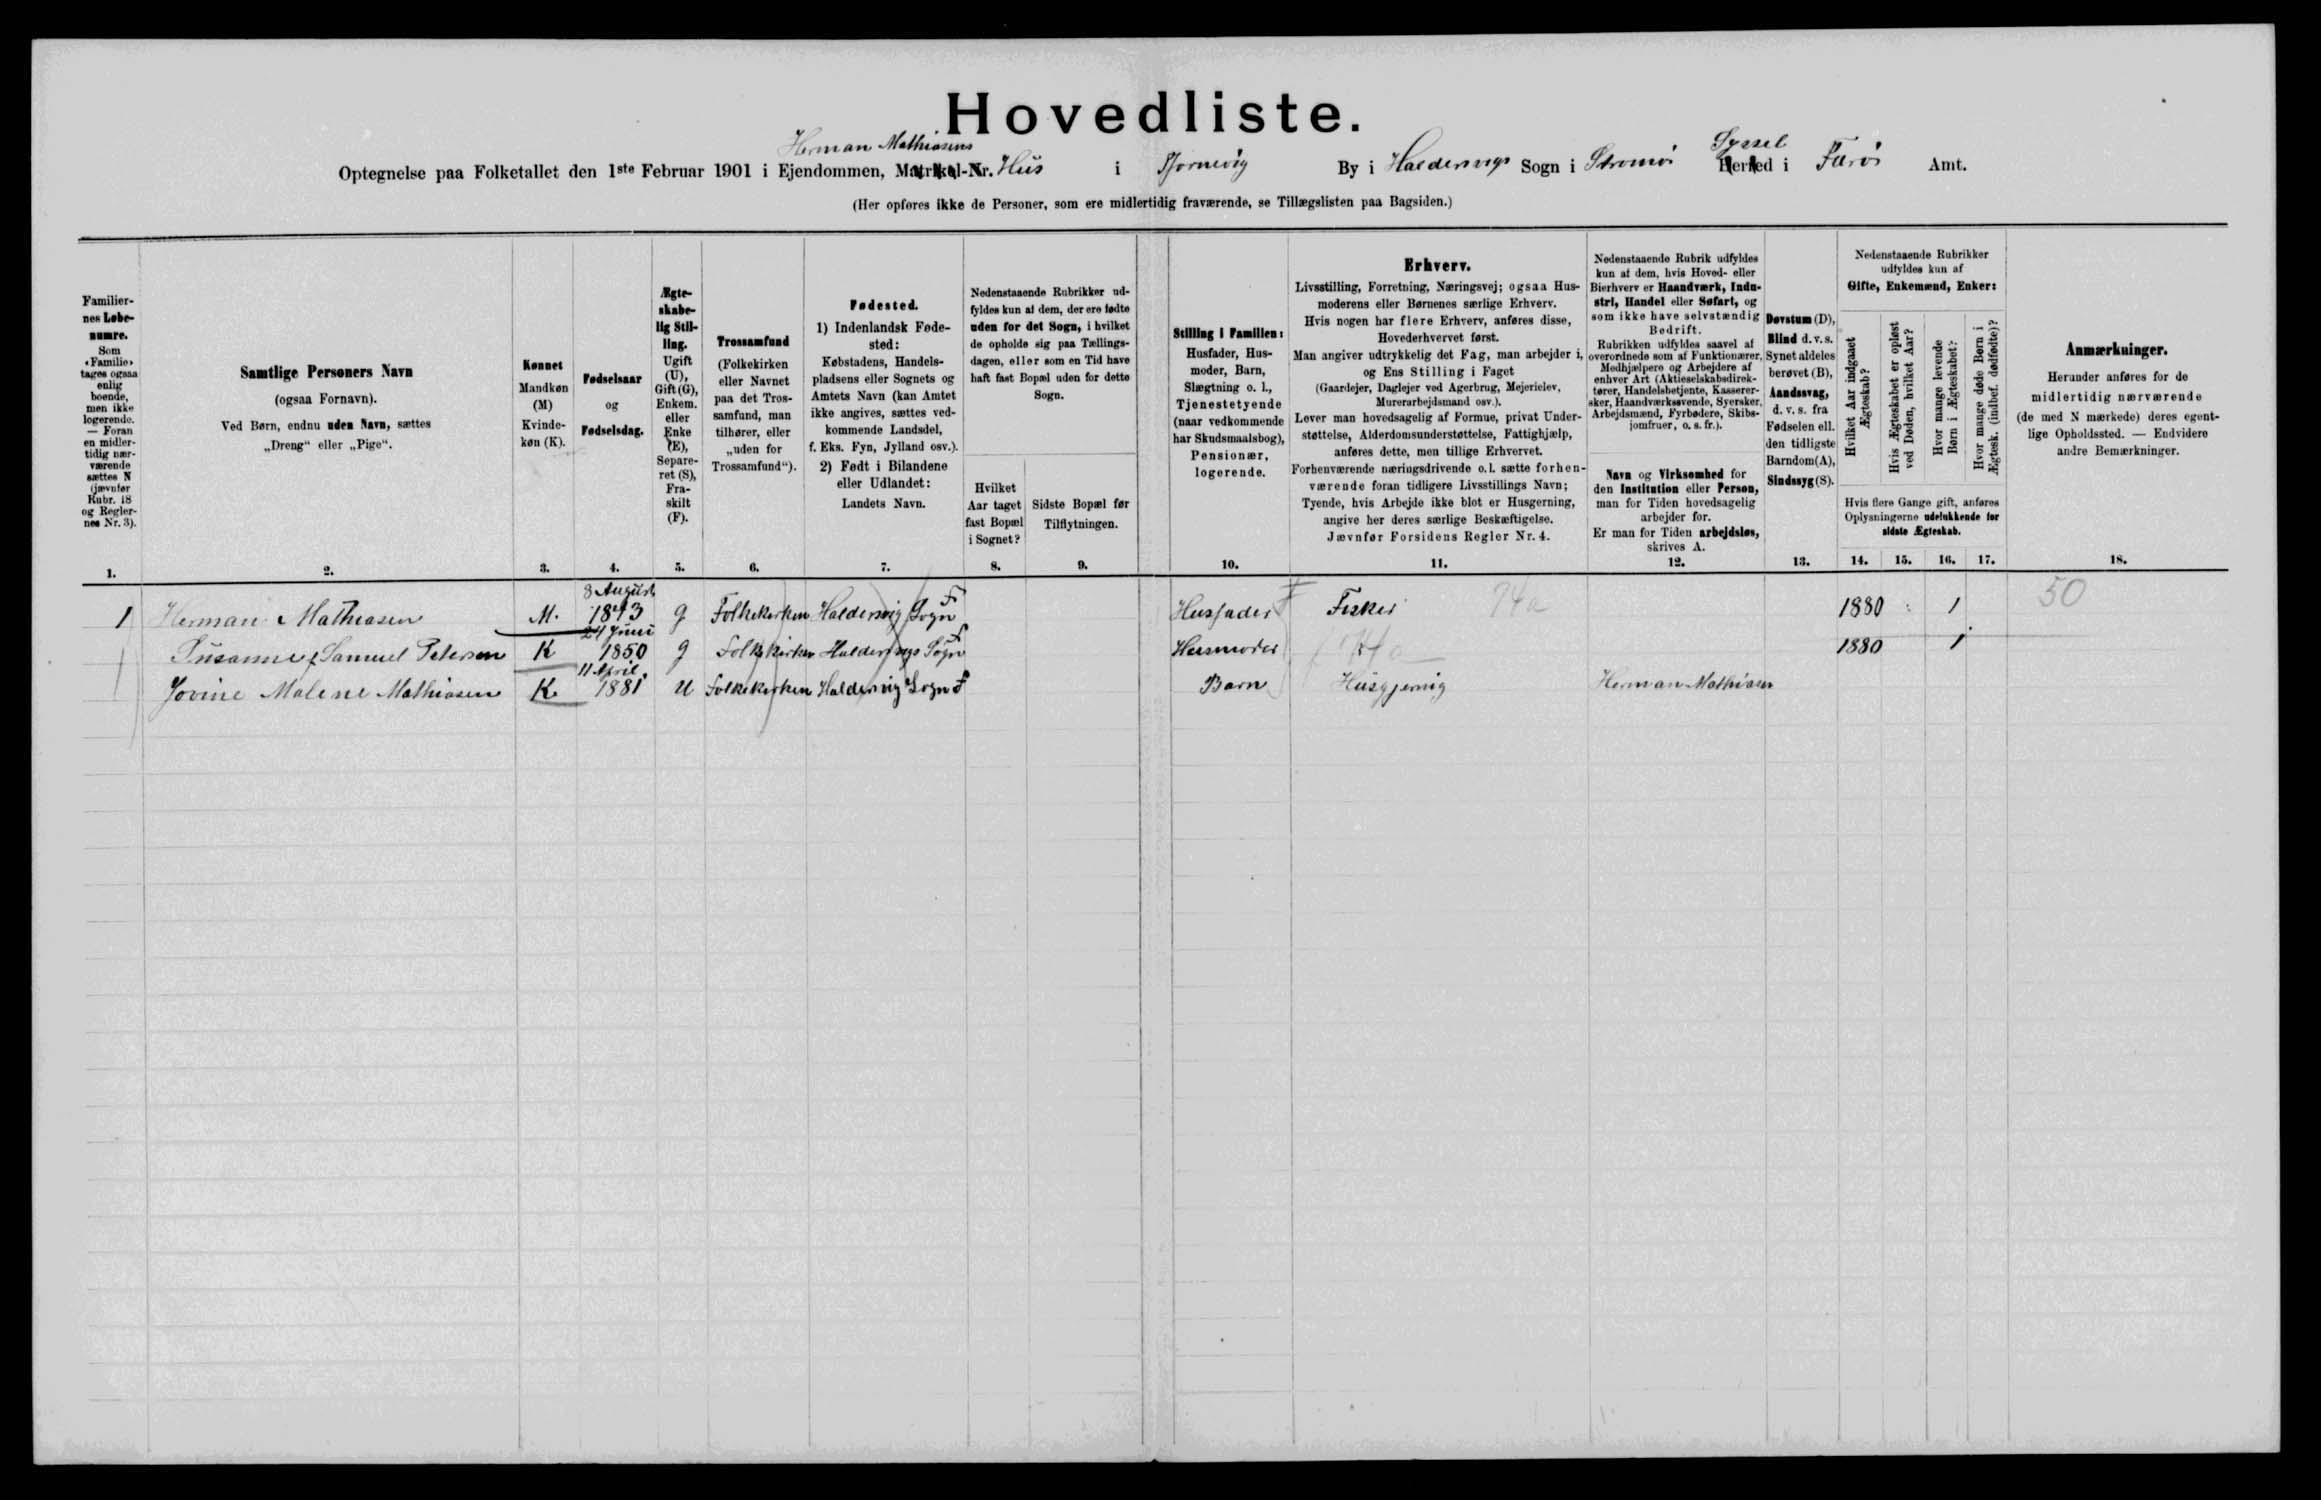 Hovedliste.
Herman Mathiasens
Syssel
Optegnelse paa Folketallet den 1ste Februar 1901 i Ejendommen, Matrikel-Nr. Hus i Tjørnevig By i Haldersvigs Sogn i Strømø Herred i Færø Amt.
(Her opføres ikke de Personer, som ere midlertidig fraværende, se Tillægslisten paa Bagsiden.)
Familier-
nes Løbe-
numre.
Som
«Familie»
tages ogsaa
enlig
boende,
men ikke
logerende.
— Foran
en midler-
tidig nær-
værende
sættes N
(jævnfør
Rubr. 18
og Regler-
nes Nr. 3).
1.
Samtlige Personers Navn
(ogsaa Fornavn).
Ved Børn, endnu uden Navn, sættes
„Dreng“ eller „Pige“.
2.
Kønnet
Mandkøn
(M)
Kvinde-
køn (K).
3.
Fødselsaar
og
Fødselsdag.
4.
Ægte-
skabe-
lig Stil-
ling.
Ugift
(U),
Gift (G),
Enkem.
eller
Enke
(E),
Separe-
ret (S),
Fra-
skilt
(F).
5.
Trossamfund
(Folkekirken
eller Navnet
paa det Tros-
samfund, man
tilhører, eller
„uden for
Trossamfund“).
6.
Fødested.
1) Indenlandsk Føde-
sted:
Købstadens, Handels-
pladsens eller Sognets og
Amtets Navn (kan Amtet
ikke angives, sættes ved-
kommende Landsdel,
f. Eks. Fyn, Jylland osv.).
2) Født i Bilandene
eller Udlandet:
Landets Navn.
7.
Nedenstaaende Rubrikker ud-
fyldes kun af dem, der ere fødte
uden for det Sogn, i hvilket
de opholde sig paa Tællings-
dagen, eller som en Tid have
haft fast Bopæl uden for dette
Sogn.
Hvilket
Aar taget
fast Bopæl
i Sognet?
8.
Sidste Bopæl før
Tilflytningen.
9.
Stilling i Familien:
Husfader, Hus-
moder, Barn,
Slægtning o. l.,
Tjenestetyende
(naar vedkommende
har Skudsmaalsbog),
Pensionær,
logerende.
10.
Erhverv.
Livsstilling, Forretning, Næringsvej; ogsaa Hus-
moderens eller Børnenes særlige Erhverv.
Hvis nogen har flere Erhverv, anføres disse,
Hovederhvervet først.
Man angiver udtrykkelig det Fag, man arbejder i,
og Ens Stilling i Faget
(Gaardejer, Daglejer ved Agerbrug, Mejerielev,
Murerarbejdsmand osv.).
Lever man hovedsagelig af Formue, privat Under-
støttelse, Alderdomsunderstøttelse, Fattighjælp,
anføres dette, men tillige Erhvervet.
Forhenværende næringsdrivende o. l. sætte forhen-
værende foran tidligere Livsstillings Navn;
Tyende, hvis Arbejde ikke blot er Husgerning,
angive her deres særlige Beskæftigelse.
Jævnfør Forsidens Regler Nr. 4.
11.
Nedenstaaende Rubrik udfyldes
kun af dem, hvis Hoved- eller
Bierhverv er Haandværk, Indu-
stri, Handel eller Søfart, og
som ikke have selvstændig
Bedrift.
Rubrikken udfyldes saavel af
overordnede som af Funktionærer,
Medhjælpere og Arbejdere af
enhver Art (Aktieselskabsdirek-
tører, Handelsbetjente, Kasserer-
sker, Haandværkssvende, Syersker,
Arbejdsmænd, Fyrbødere, Skibs-
jomfruer, o. s. fr.).
Navn og Virksomhed for
den Institution eller Person,
man for Tiden hovedsagelig
arbejder for.
Er man for Tiden arbejdsløs,
skrives A.
12.
Døvstum (D),
Blind d. v. s.
Synet aldeles
berøvet (B),
Aandssvag,
d. v. s. fra
Fødselen ell.
den tidligste
Barndom (A),
Sindssyg (S).
13.
Nedenstaaende Rubrikker
udfyldes kun af
Gifte, Enkemænd, Enker:
Hvilket Aar indgaaet
Ægteskab?
Hvis Ægteskabet er opløst
ved Døden, hvilket Aar?
Hvor mange levende
Børn i Ægteskabet?
Hvor mange døde Børn i
Ægtesk. (indbef. dødfødte)?
Hvis flere Gange gift, anføres
Oplysningerne udelukkende for
sidste Ægteskab.
14. 15. 16. 17.
Anmærkninger.
Herunder anføres for de
midlertidig nærværende
(de med N mærkede) deres egent-
lige Opholdssted. — Endvidere
andre Bemærkninger.
18.
8 August
1 Herman Mathiasen M. 1843 g Folkekirken Haldersvig Sogn F Husfader F Fisker 74a 1880 1 50
24 Juni
Susanne f Samuel Petersen K 1850 g Folkekirken Haldersvigs Sogn F Husmoder 74a 1880 1
11 April
Jovine Malene Mathiasen K. 1881 U Folkekirken Haldersvig Sogn F Barn Husgjerning Herman Mathiasen